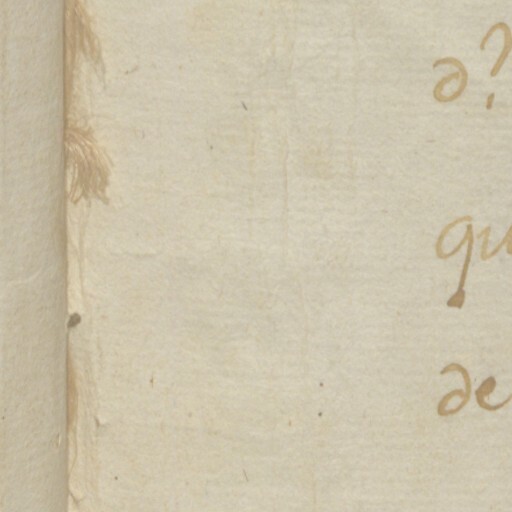 d?
qu
de